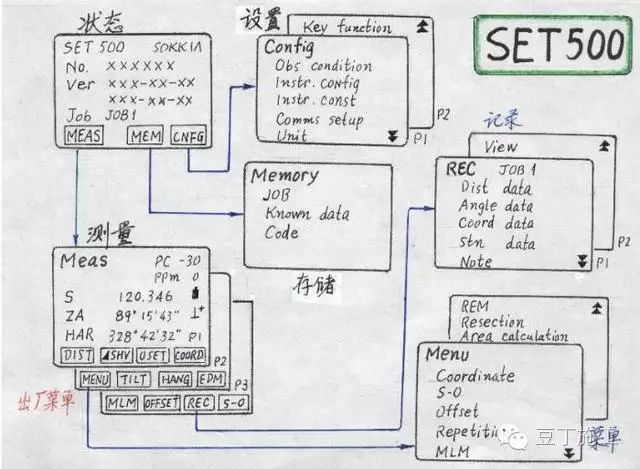 状态
SET 500 SOKKIA
No. ××××××
Ver ×××-××-××
×××-××-××
Job JOB1
MEAS MEM CNFG
设置
Key function
Config
Obs condition
Instr. config
Instr. const
Comms setup
Unit
P1
P2
SET500
Memory
JOB
Known data
Code
存储
记录
View
REC JOB1
Dist data
Angle data
Coord data
Stn data
Note
P1
P2
测量
Meas PC -30
PPm 0
S 120.346
ZA 89°15'43"
HAR 328°42'32" P1
DIST ◢SHV 0SET COORD
P2
MENU TILT HANG EDM
P3
MLM OFFSET REC S-O
出厂菜单
REM
Resection
Area calculation
Menu
Coordinate
S-O
Offset
MLM
菜单